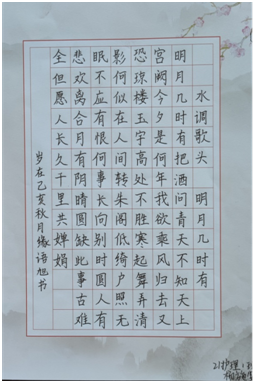 水调歌头 明月几时有
明月几时有把酒问青天不知天上
宫阙今夕是何年我欲乘风归去又
恐琼楼玉宇高处不胜寒起舞弄清
影何似在人间转朱阁低绮户照无
眠不应有恨何事长向别时圆人有
悲欢离合月有阴晴圆缺此事古难
全但愿人长久千里共婵娟
岁在乙亥秋月缘语旭书
21护理